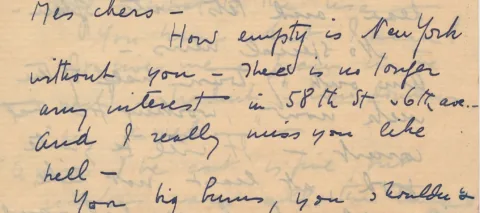 Mes chers –
How empty is New York
without you – There is no longer
any interest in 58th St & 6th ave. –
And I really miss you like
hell –
You big bums, you shouldn't